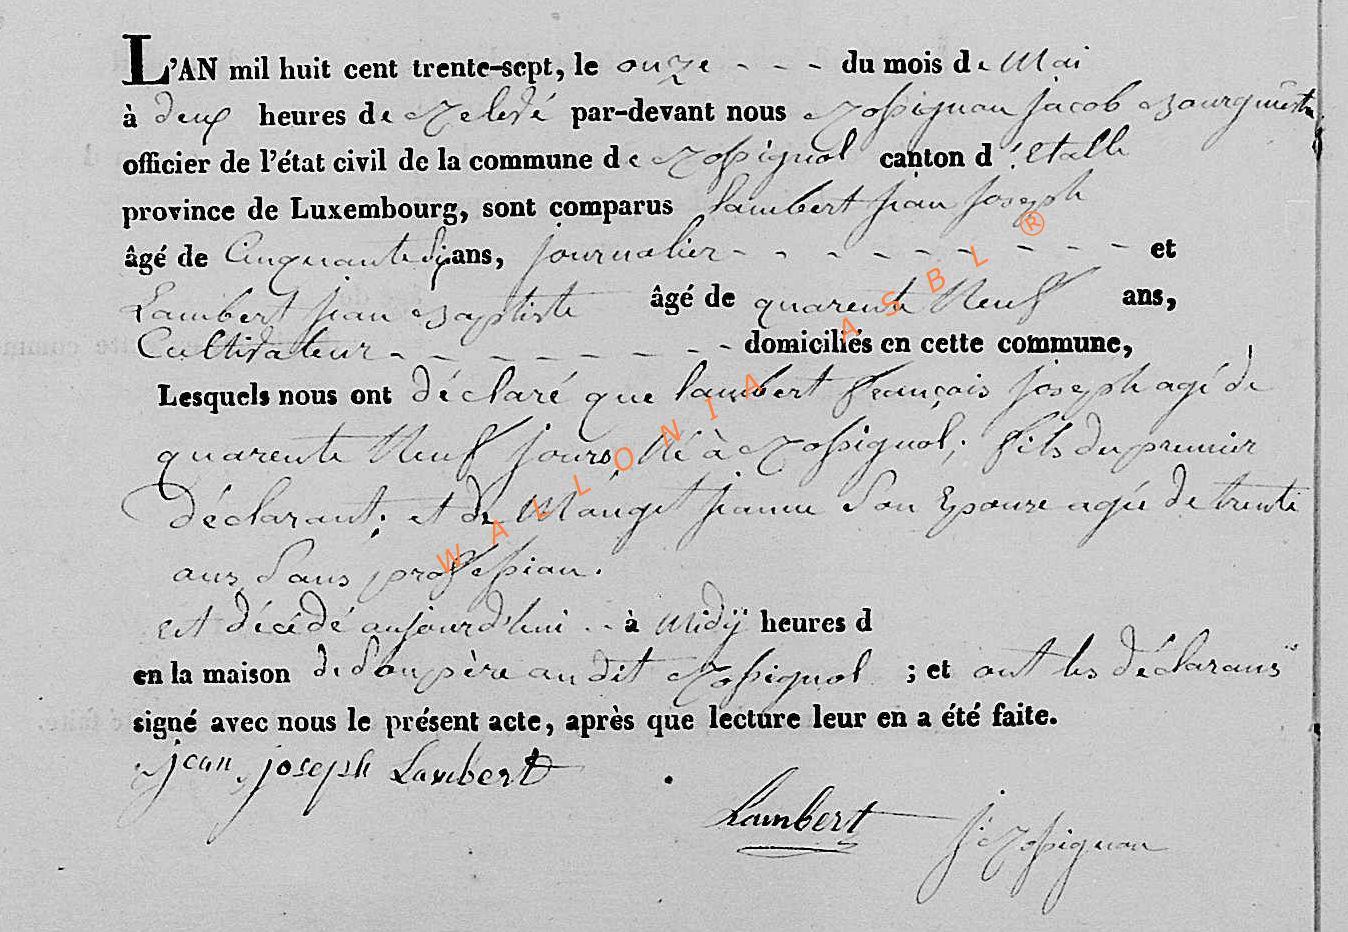 L'AN mil huit cent trente-sept, le onze - - - du mois de Mai
à deux heures de Relevé par-devant nous Rossignon Jacob Bourgmestre
officier de l'état civil de la commune de Rossignol canton d'Etalle
province de Luxembourg, sont comparus Lambert jean joseph
âgé de Cinquante ans, journalier - - - - - - - - - et
Lambert jean Baptiste âgé de quarente Neuf ans,
Cultivateur - - - - - - - - domiciliés en cette commune,
Lesquels nous ont déclaré que lambert françois joseph agé de
quarente Neuf jours, Né à Rossignol; fils du premier
déclarant; et de Mânget jeanne Son Epouze agée de trente
ans, Sans profession.
est décédé aujourd'hui - - à midÿ heures d
en la maison de Son père au dit Rossignol ; et ont les déclarans
signé avec nous le présent acte, après que lecture leur en a été faite.
jean joseph Lambert
Lambert J: Rossignon
WALLONIA ASBL ®